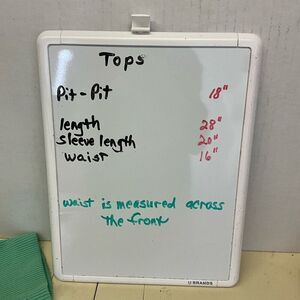 Tops
Pit-Pit 18"
length 28"
Sleeve length 20"
waist 16"
waist is measured across
the front
U BRANDS